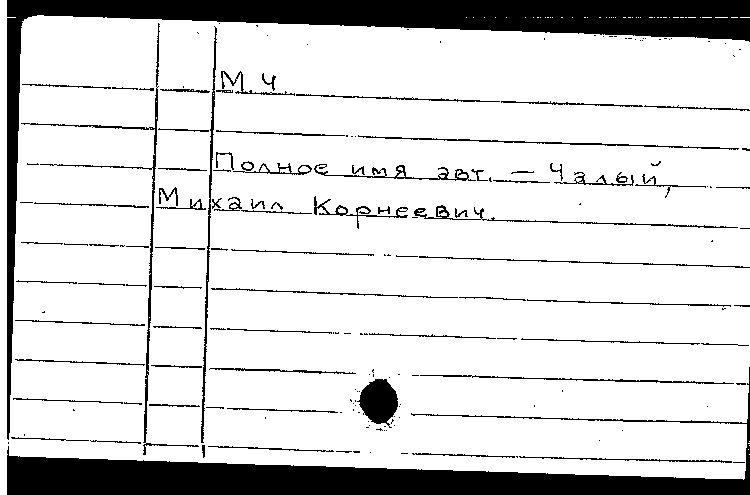 М. Ч.
Полное имя авт. — Чалый,
Михаил Корнеевич.